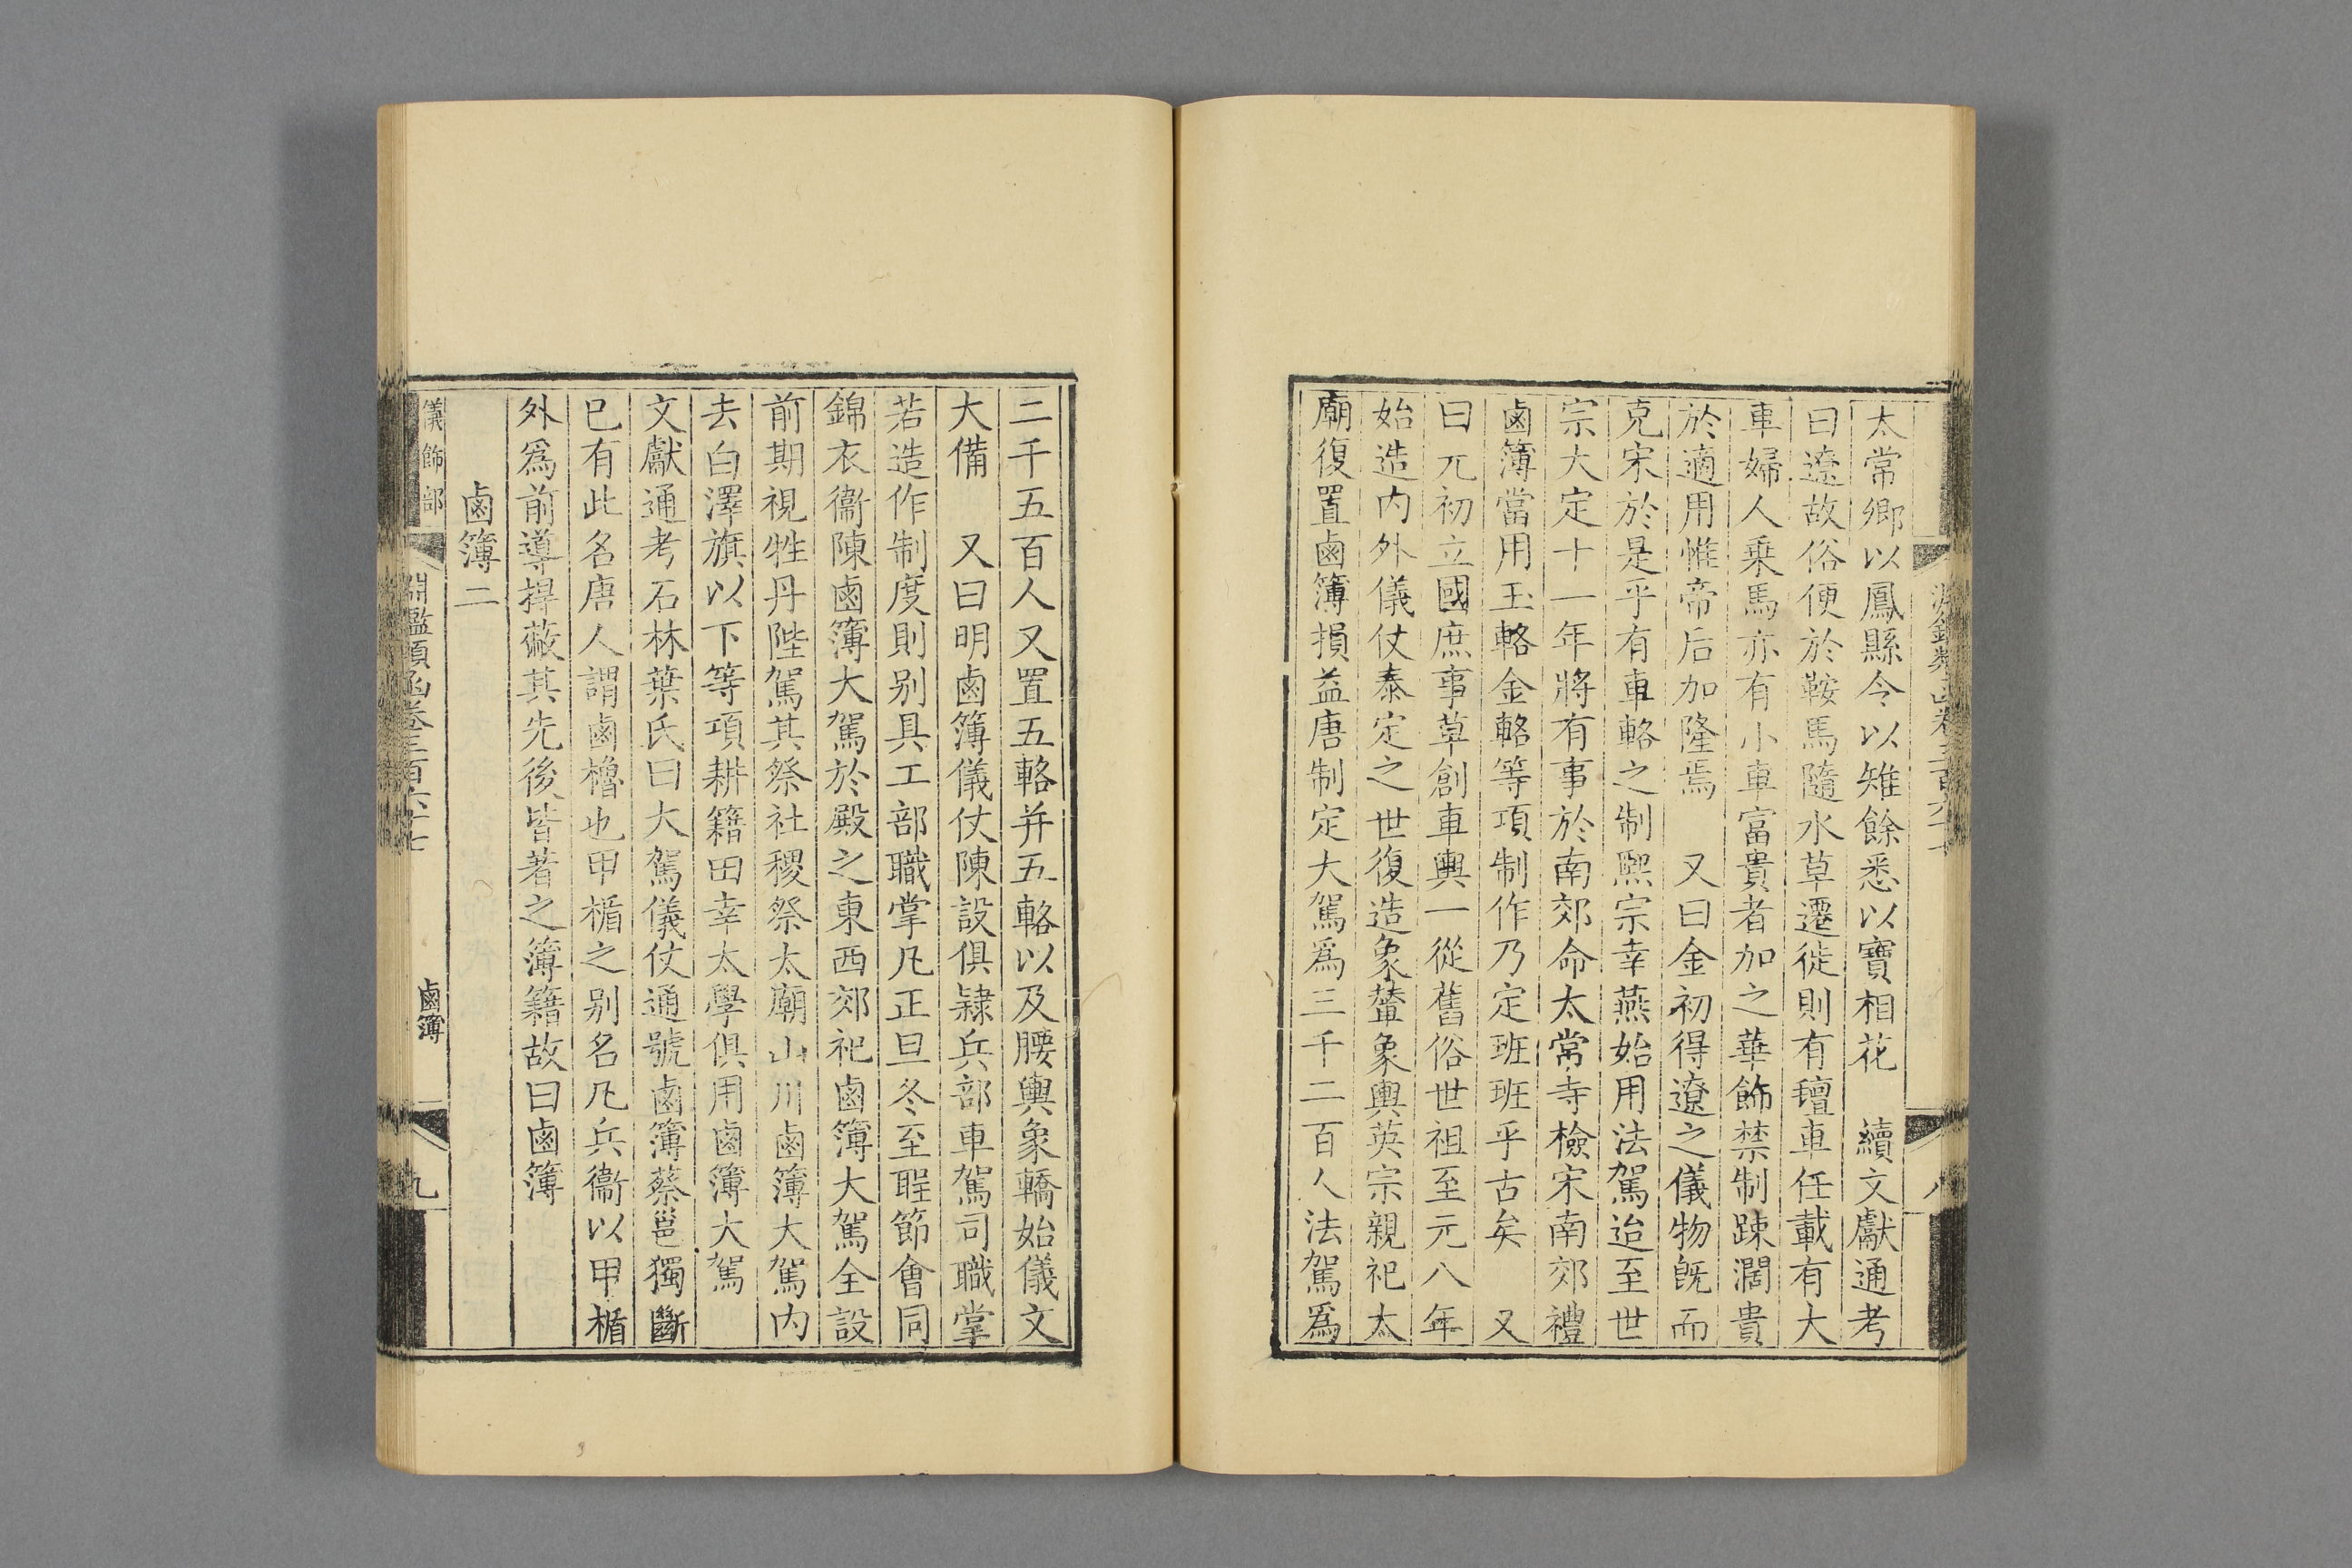 太常鄉以鳳縣令以雉餘悉以寶相花　續文獻通考
曰遼故俗便於鞍馬隨水草遷徙則有氊車任載有大
車婦人乗馬亦有小車富貴者加之華飾禁制踈濶貴
於適用惟帝后加隆焉　又曰金初得遼之儀物旣而
克宋於是乎有車輅之制熙宗幸燕始用法駕迨至世
宗大定十一年將有事於南郊命太常寺檢宋南郊禮
鹵簿當用玉輅金輅等項制作乃定班班乎古矣　又
曰元初立國庶事草創車輿一從舊俗世祖至元八年
始造内外儀仗泰定之世復造象輦象輿英宗親祀太
廟復置鹵簿損益唐制定大駕爲三千二百人法駕爲
二千五百人又置五輅并五輅以及腰輿象轎始儀文
大備　又曰明鹵簿儀仗陳設俱隷兵部車駕司職掌
若造作制度則别具工部職掌凡正旦冬至聖節會同
錦衣衞陳鹵簿大駕於殿之東西郊祀鹵簿大駕全設
前期視牲丹陛駕其祭社稷祭太廟山川鹵簿大駕内
去白澤旗以下等項耕籍田幸太學俱用鹵簿大駕
文獻通考石林葉氏曰大駕儀仗通號鹵簿蔡邕獨斷
已有此名唐人謂鹵櫓也甲楯之别名凡兵衞以甲楯
外爲前導捍蔽其先後皆著之簿籍故曰鹵簿
鹵簿二
儀飾部
淵鑑類函卷三百六十七
鹵簿
九